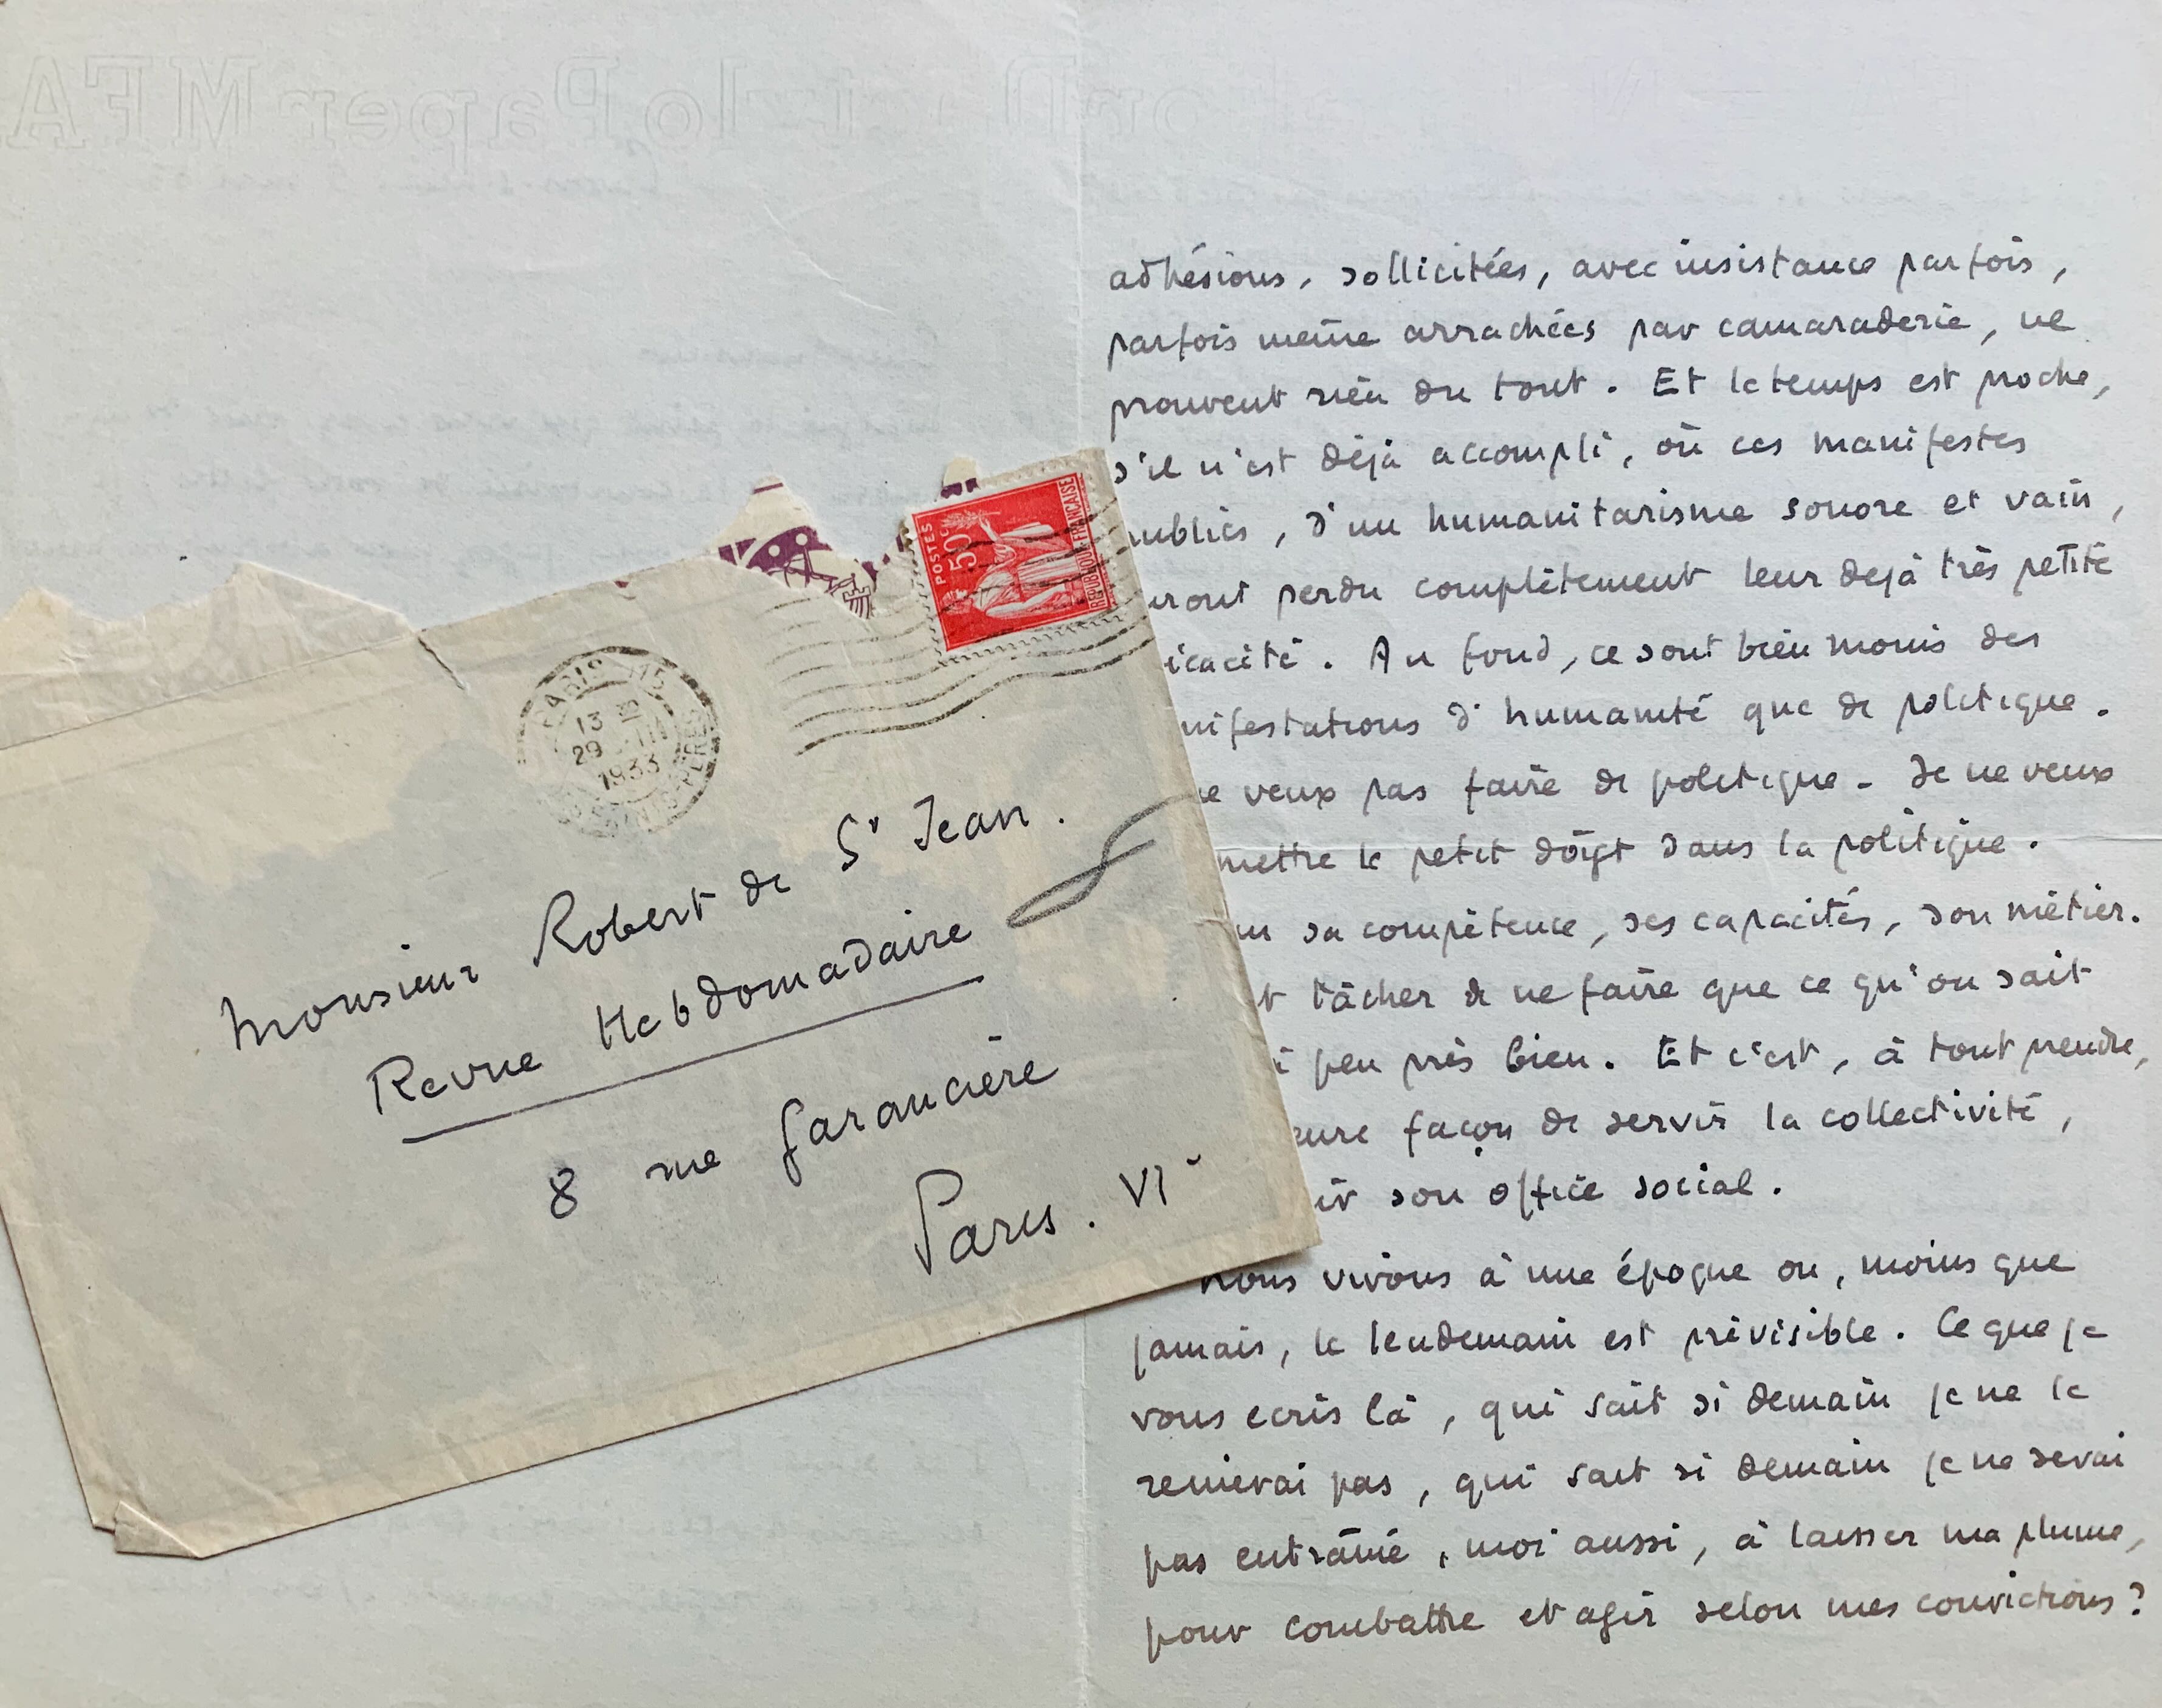 POSTES
50c
REPUBLIQUE FRANÇAISE
PARIS
13
29
1933
Monsieur Robert de St Jean.
Revue Hebdomadaire
8 rue Garancière
Paris. VIe
adhésions, sollicitées, avec insistance parfois,
parfois même arrachées par camaraderie, ne
prouvent rien du tout. Et le temps est proche,
s'il n'est déjà accompli, où ces manifestes
publics, d'un humanitarisme sonore et vain,
uront perdu complètement leur déjà très petite
icacité. Au fond, ce sont bien moins des
nifestations d'humanité que de politique.
ne veux pas faire de politique. Je ne veux
mettre le petit doigt dans la politique.
un sa compétence, ses capacités, son métier.
t tâcher de ne faire que ce qu'on sait
à peu près bien. Et c'est, à tout prendre,
eure façon de servir la collectivité,
ir son office social.
Nous vivons à une époque où, moins que
jamais, le lendemain est prévisible. Ce que je
vous écris là, qui sait si demain je ne le
renierai pas, qui sait si demain je ne serai
pas entraîné, moi aussi, à laisser ma plume,
pour combattre et agir selon mes convictions?